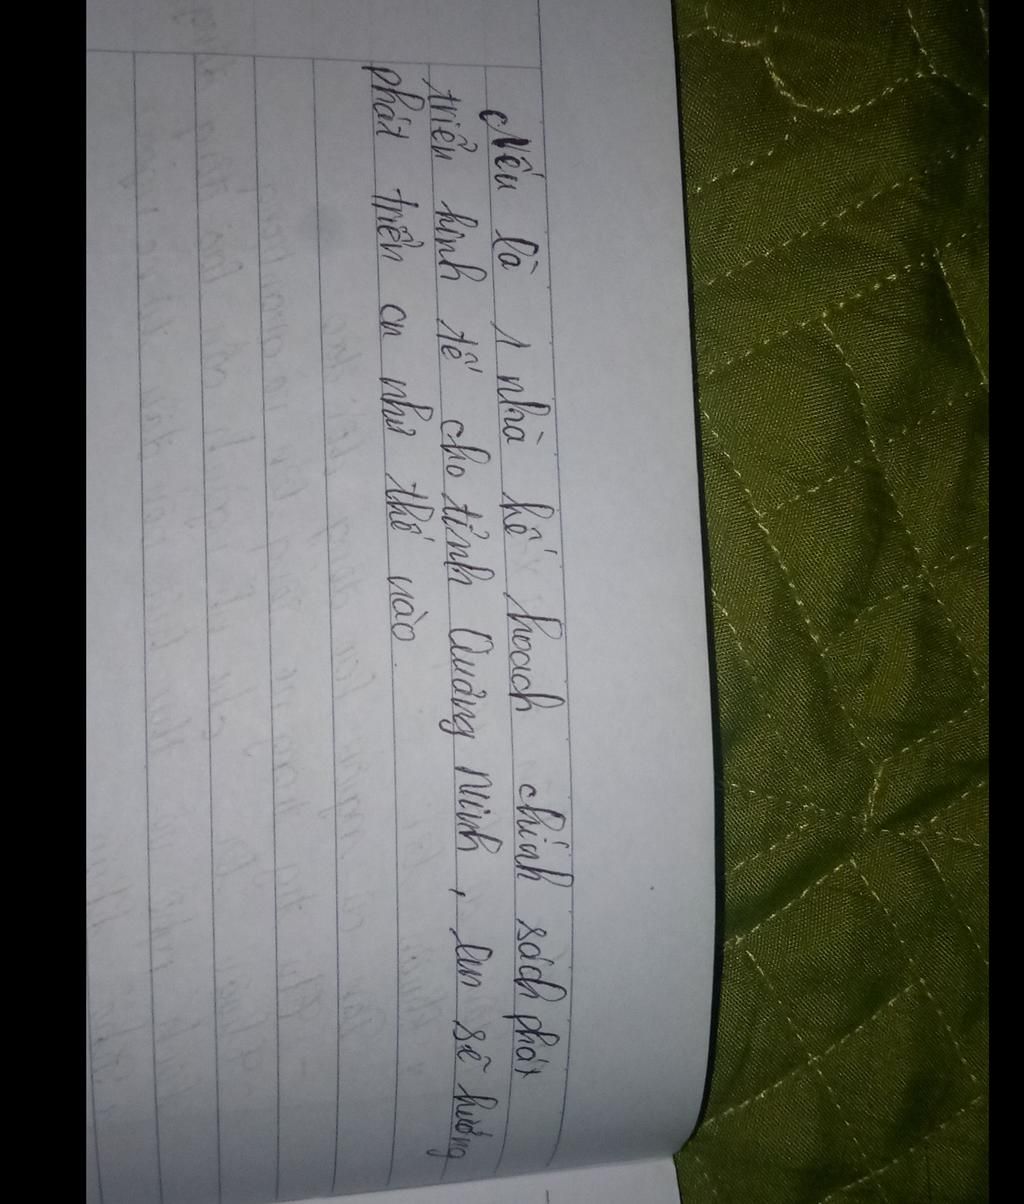 Nếu là 1 nhà kế hoach chính sách phát
triển kinh tế cho tỉnh Quảng Ninh, em sẽ hướng
phát triển cn như thế nào.